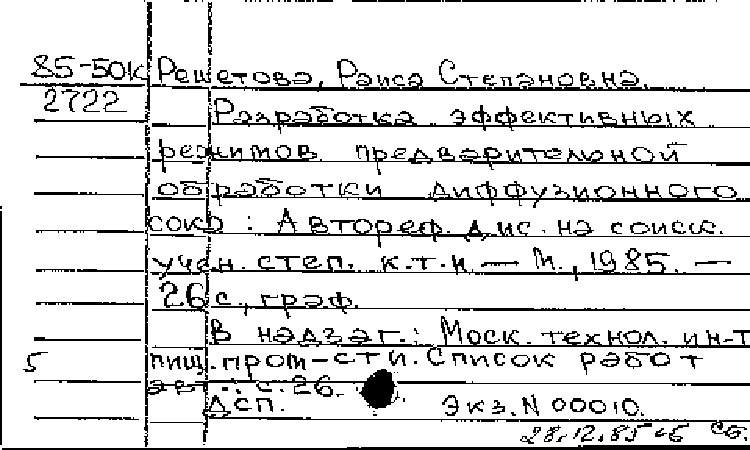 85-50к Решетова, Раиса Степановна.
2722 Разработка эффективных
режимов предварительной
обработки диффузионного
сока : Автореф. дис. на соиск.
учен. степ. к.т.н. — М., 1985. —
26 с., граф.
В надзаг.: Моск. технол. ин-т
5 пищ. пром-сти. Список работ
авт.: с. 26.
ДСП. Экз. N 00010.
28.12.85